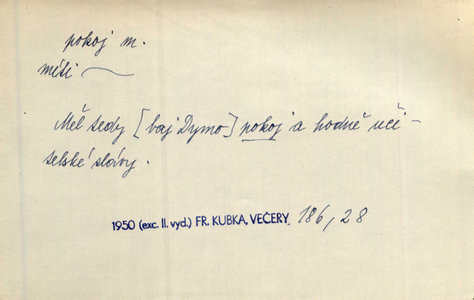 pokoj m.
míti ~
Měl tedy [baj Dymo] pokoj a hodně uči-
telské slávy.
1950 (exc. II. vyd.) FR. KUBKA, VEČERY, 186, 28